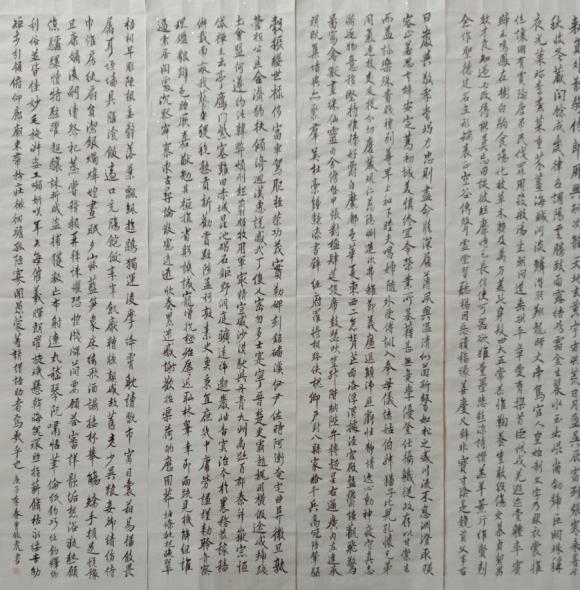 秋收冬藏閏餘成歲律呂調陽雲騰致雨露結為霜金生麗水玉出崑岡劍號巨闕珠稱
夜光果珍李柰菜重芥薑海鹹河淡鱗潛羽翔龍師火帝鳥官人皇始制文字乃服衣裳推
位讓國有虞陶唐弔民伐罪周發殷湯坐朝問道垂拱平章愛育黎首臣伏戎羌遐邇壹體率賓
歸王鳴鳳在樹白駒食場化被草木賴及萬方蓋此身髮四大五常恭惟鞠養豈敢毀傷女慕貞潔男
效才良知過必改得能莫忘罔談彼短靡恃己長信使可覆器欲難量墨悲絲染詩讚羔羊景行維賢剋
念作聖德建名立形端表正空谷傳聲虛堂習聽禍因惡積福緣善慶尺璧非寶寸陰是競資父事君
曰嚴與敬孝當竭力忠則盡命臨深履薄夙興溫凊似蘭斯馨如松之盛川流不息淵澄取暎
容止若思言辭安定篤初誠美慎終宜令榮業所基籍甚無竟學優登仕攝職從政存以甘棠去
而益詠樂殊貴賤禮別尊卑上和下睦夫唱婦隨外受傅訓入奉母儀諸姑伯叔猶子比兒孔懷兄弟
同氣連枝交友投分切磨箴規仁慈隱惻造次弗離節義廉退顛沛匪虧性靜情逸心動神疲守真志
滿逐物意移堅持雅操好爵自縻都邑華夏東西二京背邙面洛浮渭據涇宮殿盤鬱樓觀飛驚
圖寫禽獸畫彩仙靈丙舍傍啟甲帳對楹肆筵設席鼓瑟吹笙升階納陛弁轉疑星右通廣內左達承
明既集墳典亦聚群英杜稿鍾隸漆書壁經府羅將相路俠槐卿戶封八縣家給千兵高冠陪輦驅
轂振纓世祿侈富車駕肥輕策功茂實勒碑刻銘磻溪伊尹佐時阿衡奄宅曲阜微旦孰
營桓公匡合濟弱扶傾綺迴漢惠說感武丁俊乂密勿多士寔寧晉楚更霸趙魏困橫假途滅虢踐
土會盟何遵約法韓弊煩刑起翦頗牧用軍最精宣威沙漠馳譽丹青九州禹跡百郡秦并嶽宗恆
岱禪主云亭雁門紫塞雞田赤城昆池碣石鉅野洞庭曠遠綿邈巖岫杳冥治本於農務茲稼穡
俶載南畝我藝黍稷稅熟貢新勸賞黜陟孟軻敦素史魚秉直庶幾中庸勞謙謹敕聆音察
理鑑貌辨色貽厥嘉猷勉其祗植省躬譏誡寵增抗極殆辱近恥林皋幸即兩疏見機解組誰
逼索居閒處沉默寂寥求古尋論散慮逍遙欣奏累遣慼謝歡招渠荷的歷園莽抽條枇杷晚翠
梧桐早凋陳根委翳落葉飄颻遊鵾獨運凌摩絳霄耽讀翫市寓目囊箱易輶攸畏
屬耳垣墻具膳飡飯適口充腸飽飫烹宰飢厭糟糠親戚故舊老少異糧妾御績紡侍
巾帷房紈扇圓潔銀燭煒煌晝眠夕寐藍筍象床絃歌酒讌接杯舉觴矯手頓足悅豫
且康嫡後嗣續祭祀蒸嘗稽顙再拜悚懼恐惶牋牒簡要顧答審詳骸垢想浴執熱願
涼驢騾犢特駭躍超驤誅斬賊盜捕獲叛亡布射遼丸嵇琴阮嘯恬筆倫紙鈞巧任釣釋紛
利俗並皆佳妙毛施淑姿工顰妍笑年矢每催曦暉朗曜璇璣懸斡晦魄環照指薪修祜永綏吉劭
矩步引領俯仰廊廟束帶矜莊徘徊瞻眺孤陋寡聞愚蒙等誚謂語助者焉哉乎也